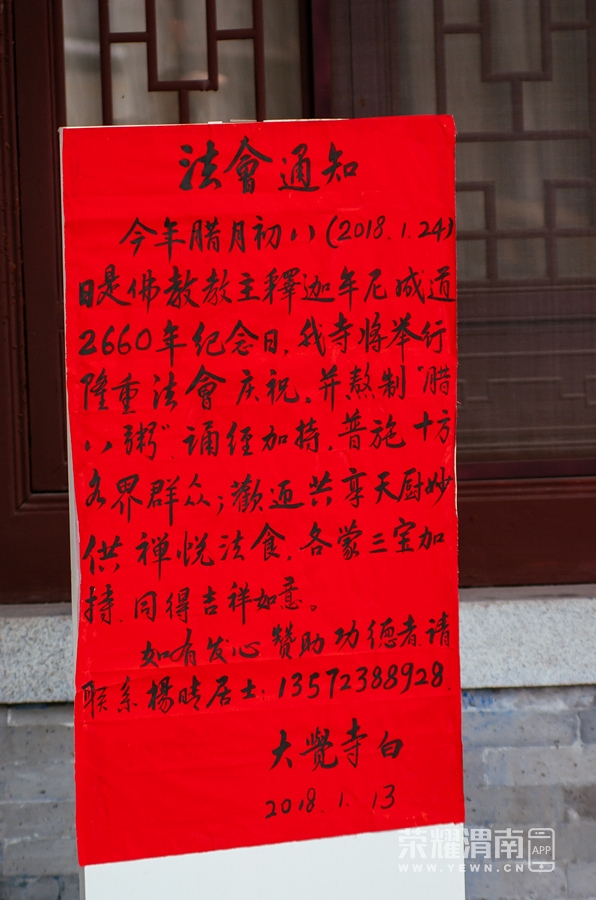 法會通知
今年腊月初八(2018.1.24)
日是佛教教主釋迦牟尼成道
2660年纪念日,我寺将举行
隆重法會庆祝。并熬制“腊
八粥”诵经加持,普施十方
各界群众;歡迎共享天厨妙
供禅悦法食,各蒙三宝加
持,同得吉祥如意。
如有发心赞助功德者请
联系楊晴居士:13572388928.
大覺寺白
2018.1.13
荣耀渭南 APP
WWW.YEWN.CN